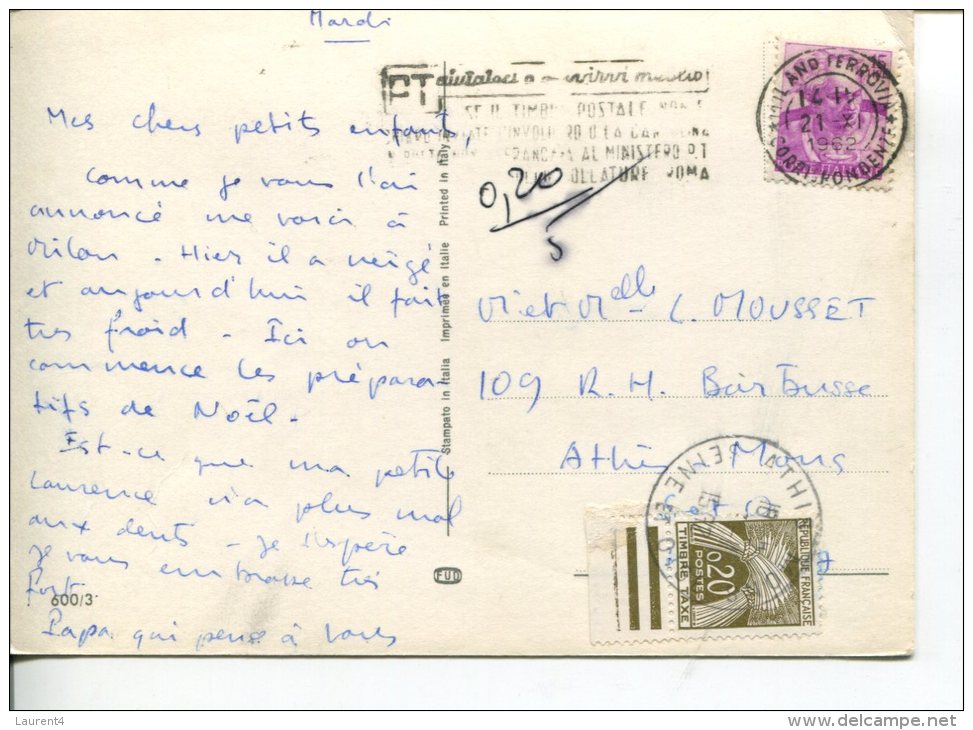 Mardi
Mes chers petits enfants,
comme je vous l'ai
annoncé me voici à
Milan - Hier il a neigé
et aujourd'hui il fait
très froid - Ici on
commence les prépara-
tifs de Noël -
Est-ce que ma petite
Laurence n'a plus mal
aux dents - Je l'espère
Je vous embrasse très
fort
Papa qui pense à vous
600/3
FUD
Stampato in Italia Imprimée en Italie Printed in Italy
PT
SE IL TIMBRO POSTALE NON E
AL MINISTERO P.T
ROMA
MILANO FERROVIA
14
21 XI
1962
0,20
5
M et Mlle - L. MOUSSET
109 R. H. Barbusse
Athis Mons
S et O
ATHIS
REPUBLIQUE FRANÇAISE
0,20
POSTES
TIMBRE TAXE
Laurent4
www.delcampe.net